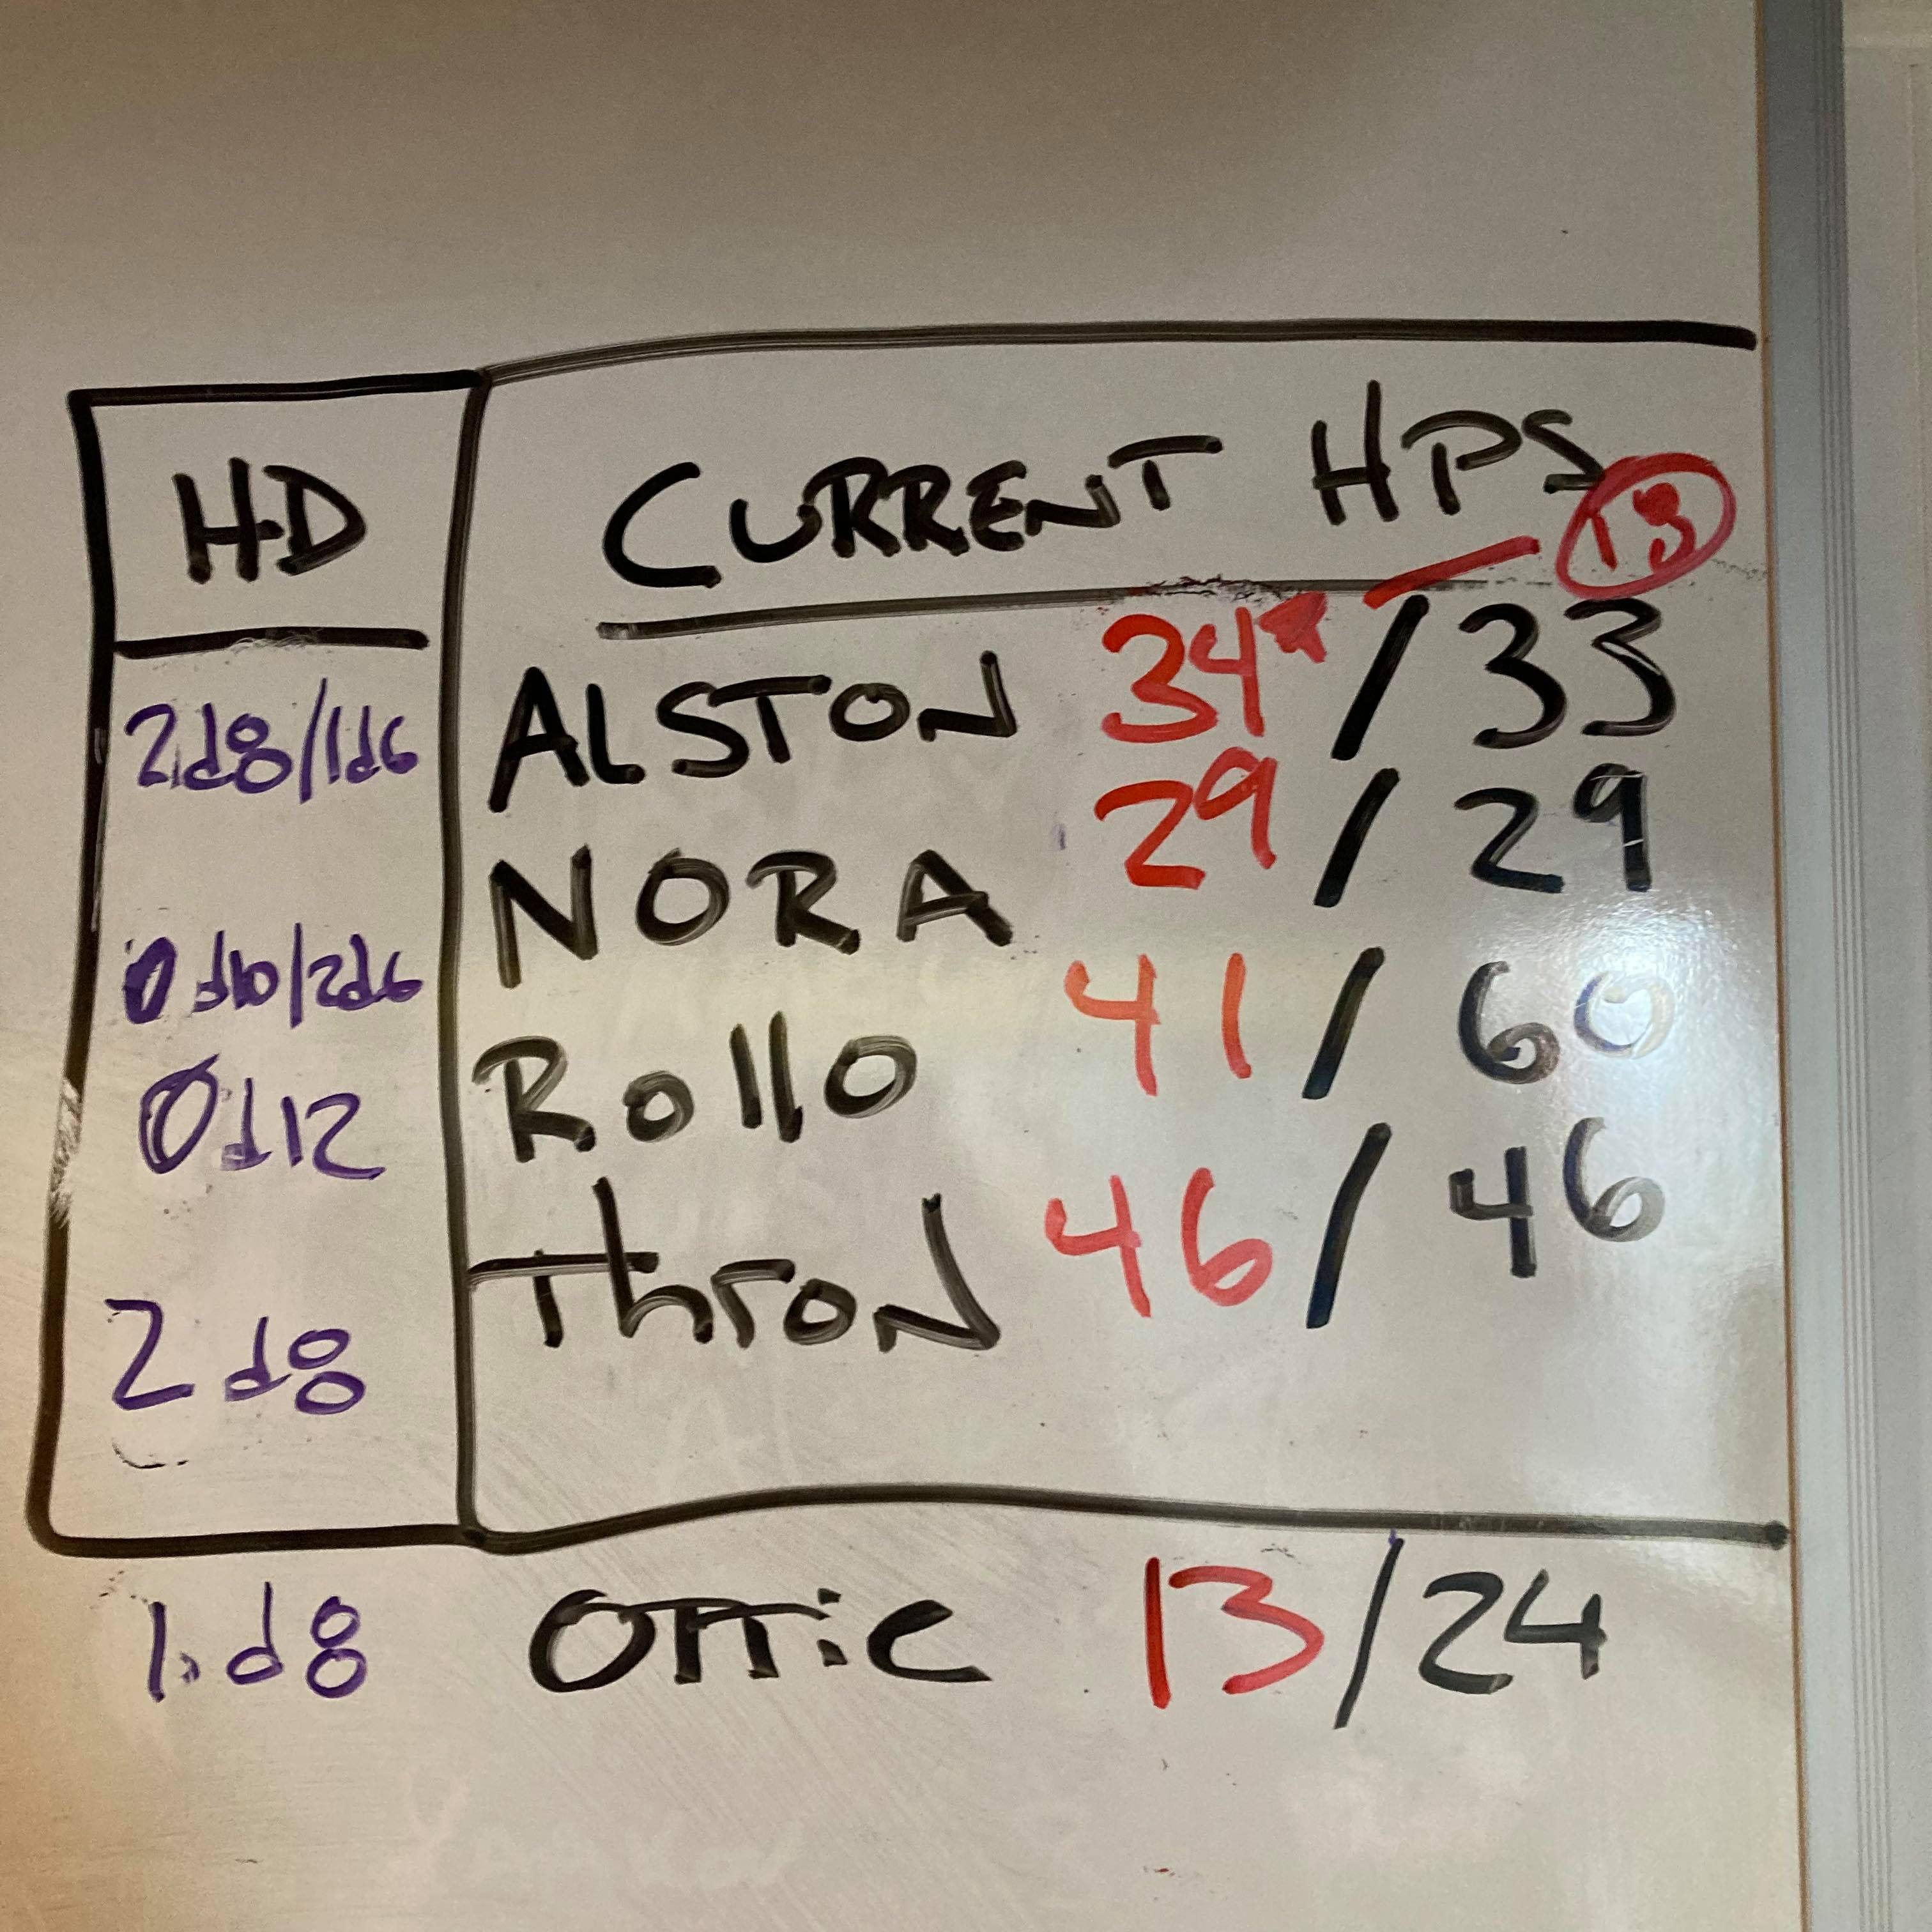 HD CURRENT HPS 13
2d8/1d6 ALSTON 34* / 33
0d10/2d6 NORA 29 / 29
0d12 Rollo 41 / 60
2d8 Thron 46 / 46
1d8 OTTIC 13/24